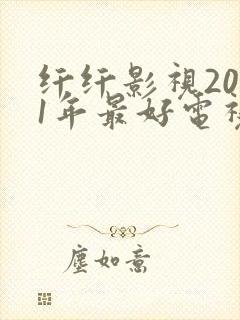 纤纤影視20
1年最好電視
塵如意